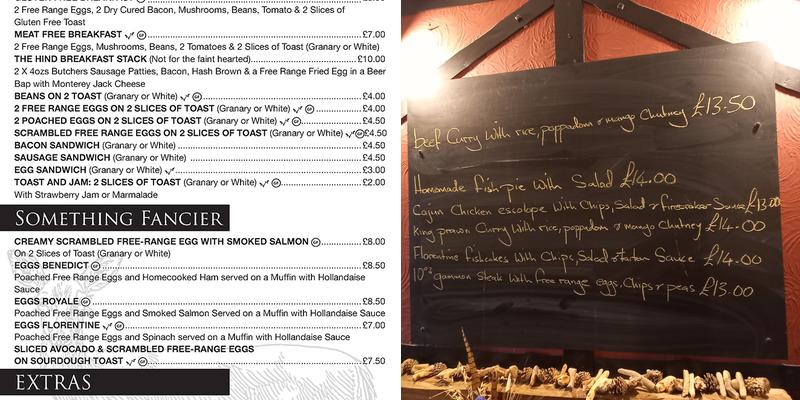 2 Free Range Eggs, 2 Dry Cured Bacon, Mushrooms, Beans, Tomato & 2 Slices of
Gluten Free Toast
MEAT FREE BREAKFAST £7.00
2 Free Range Eggs, Mushrooms, Beans, 2 Tomatoes & 2 Slices of Toast (Granary or White)
THE HIND BREAKFAST STACK (Not for the faint hearted) £10.00
2 X 4ozs Butchers Sausage Patties, Bacon, Hash Brown & a Free Range Fried Egg in a Beer
Bap with Monterey Jack Cheese
BEANS ON 2 TOAST (Granary or White) GF £4.00
2 FREE RANGE EGGS ON 2 SLICES OF TOAST (Granary or White) GF £4.00
2 POACHED EGGS ON 2 SLICES OF TOAST (Granary or White) GF £4.50
SCRAMBLED FREE RANGE EGGS ON 2 SLICES OF TOAST (Granary or White) GF £4.50
BACON SANDWICH (Granary or White) £4.50
SAUSAGE SANDWICH (Granary or White) £4.50
EGG SANDWICH (Granary or White) £3.00
TOAST AND JAM: 2 SLICES OF TOAST (Granary or White) GF £2.00
With Strawberry Jam or Marmalade
SOMETHING FANCIER
CREAMY SCRAMBLED FREE-RANGE EGG WITH SMOKED SALMON GF £8.00
On 2 Slices of Toast (Granary or White)
EGGS BENEDICT GF £8.50
Poached Free Range Eggs and Homecooked Ham served on a Muffin with Hollandaise
Sauce
EGGS ROYALE GF £8.50
Poached Free Range Eggs and Smoked Salmon Served on a Muffin with Hollandaise Sauce
EGGS FLORENTINE GF £7.00
Poached Free Range Eggs and Spinach served on a Muffin with Hollandaise Sauce
SLICED AVOCADO & SCRAMBLED FREE-RANGE EGGS
ON SOURDOUGH TOAST GF £7.50
EXTRAS
beef Curry with rice, poppadom & mango Chutney £13.50
Homemade fish pie with Salad £14.00
Cajun Chicken escalope with Chips, Salad & firecracker Sauce £13.00
king prawn Curry with rice, poppadom & mango Chutney £14.00
Florentine fishcakes with Chips, Salad & tartar Sauce £14.00
10oz gammon Steak with free range eggs, Chips & peas £13.00